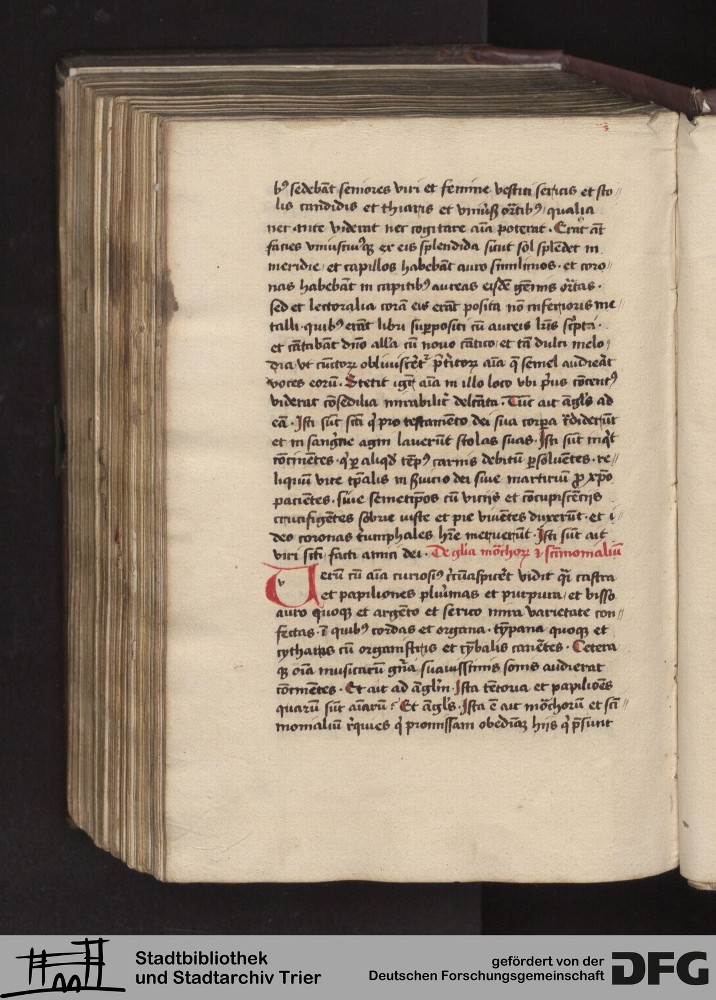 b⁹ sedebāt seniores viri et femine vestiti sericis et sto
lis candidis et thiaris et vniūsꝫ ortib⁹ qualia
nec ante viderat nec cogitare aīa poterat. Erāt āt
facies vniuscuiꝰqꝫ ex eis splendida sicut sol splēdet in
meridie et capillos habebāt auro similimos. et coro
nas habebāt in capitib⁹ aureas eisdē gēmis or̄tas.
sed et lectoralia corā eis erāt posita nō inferioris me
talli. quib⁹ erāt libri suppositi cū aureis lr̄is sc̄pti.
et cātabāt dn̄o all'a cū nouo cātico et tā dulci melo
dia vt cūctoꝝ obliuisceret᷑ p̄t̓itoꝝ aīa q̄ semel audieāt
voces eorū. Stetit igr̄ aīa in illo loco vbi p̓us cōcent⁹
viderat cōsedilia mirabilit̓ delc̄tata. Tūc ait āgl's ad
eā. Isti sūt sc̄ti q̓ pro testamēto dei sua corpa t̓diderūt
et in sangīe agni lauerūt stolas suas. Isti sūt inq̓t
cōtinētes. q̓ ꝑ aliqd̓ tēp⁹ carnis debitū ꝑsoluētes. re
liquū vite tꝑalis in ẜuicio dei siue martiriū ꝓ xp̄o
paciētes. siue semetip̄os cū vicijs et cōcupiscēcijs
crucifigētes sobrie iuste et pie viuētes duxerūt. et i
deo coronas t̓umphales hr̄e meruerūt. Isti sūt ait
viri sc̄ti facti amici dei. De gl̄ia mōchoꝝ ⁊ sc̄timonialiū
Uerū cū aīa curiosi⁹ c̓cūaspicēt vidit q̄i castra
et papiliones plurimas et purpura et bisso
auro quoqꝫ et argēto et serico mira varietate con
fectas. ī quib⁹ cordas et organa. tȳpana quoqꝫ et
cytharas cū organistris et cȳbalis canētes. Cetera
qꝫ oīa musicarū gn̄a suauissimis sonis audierat
cōcinētes. Et ait ad āgl̄m. Ista tētoria et papiliōes
quarū sūt aīarū? Et āgl's. Ista ē ait mōchorū et sc̄ti
monialiū r̓quies q̓ promissam obediāꝫ hijs q̓ p̄sunt
Stadtbibliothek
und Stadtarchiv Trier
gefördert von der
Deutschen Forschungsgemeinschaft DFG